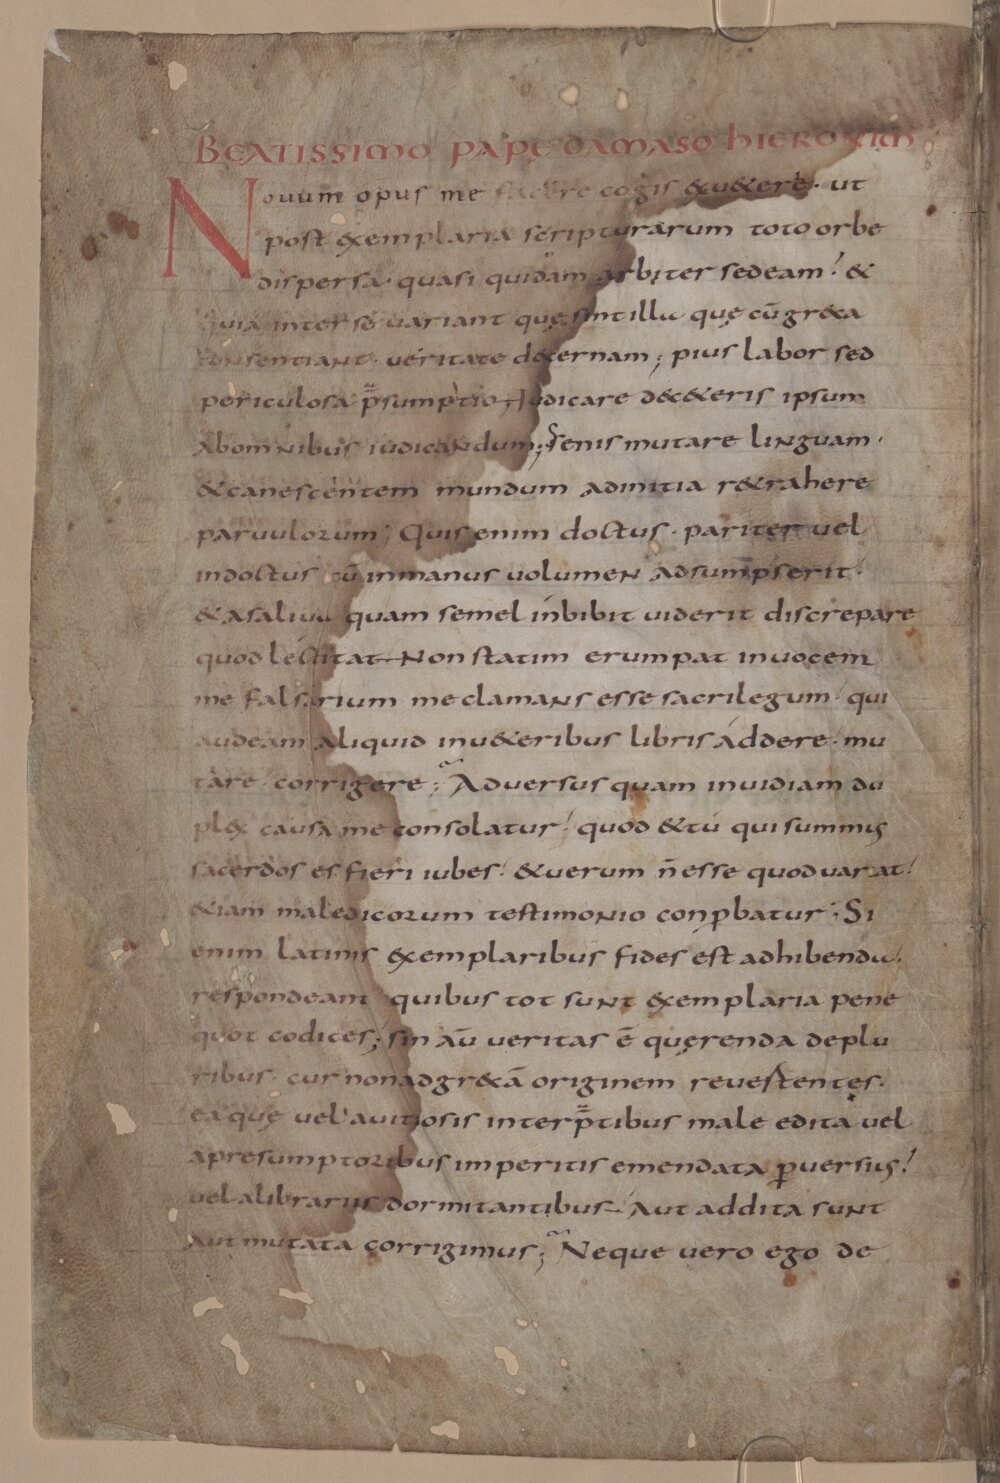 BEATISSIMO PAPĘ DAMASO HIERONIM
Novum opus me facere cogis & u&erẹ · ut
post exemplaria scripturarum toto orbe
dispersa · quasi quidam arbiter sedeam · &
quia inter se variant quę sint illa quę cū gr&ca
consentiant · veritate decernam ; pius labor sed
periculosa p̄sumptio · Iudicare de c&eris ipsum
ab omnibus iudicandum ; Senis mutare linguam ·
& canescentem mundum ad initia r&rahere
parvulorum ; Quis enim doctus · pariter vel
indoctus cū in manus volumen adsumpserit ·
& a saliva quam semel inbibit viderit discrepare
quod lectitat · Non statim erumpat in vocem
me falsarium me clamans esse sacrilegum · qui
audeam aliquid in u&eribus libris addere · mu
tare · corrigere ; Adversus quam invidiam du
plex causa me consolatur · quod & tu qui summus
sacerdos es fieri iubes · & verum n̄ esse quod variat ·
&iam maledicorum testimonio conprbatur ; Si
enim latinis exemplaribus fides est adhibenda ·
respondeant quibus tot sunt exemplaria pene
quot codices ; sin aū veritas ē quęrenda de plu
ribus · cur non ad gr&cā originem revertentes ·
ea quę vel a vitiosis interp̄tibus male edita vel
a presumptoribus imperitis emendata pversius ·
vel a librariis dormitantibus · Aut addita sunt
aut mutata corrigimus ; Neque vero ego de